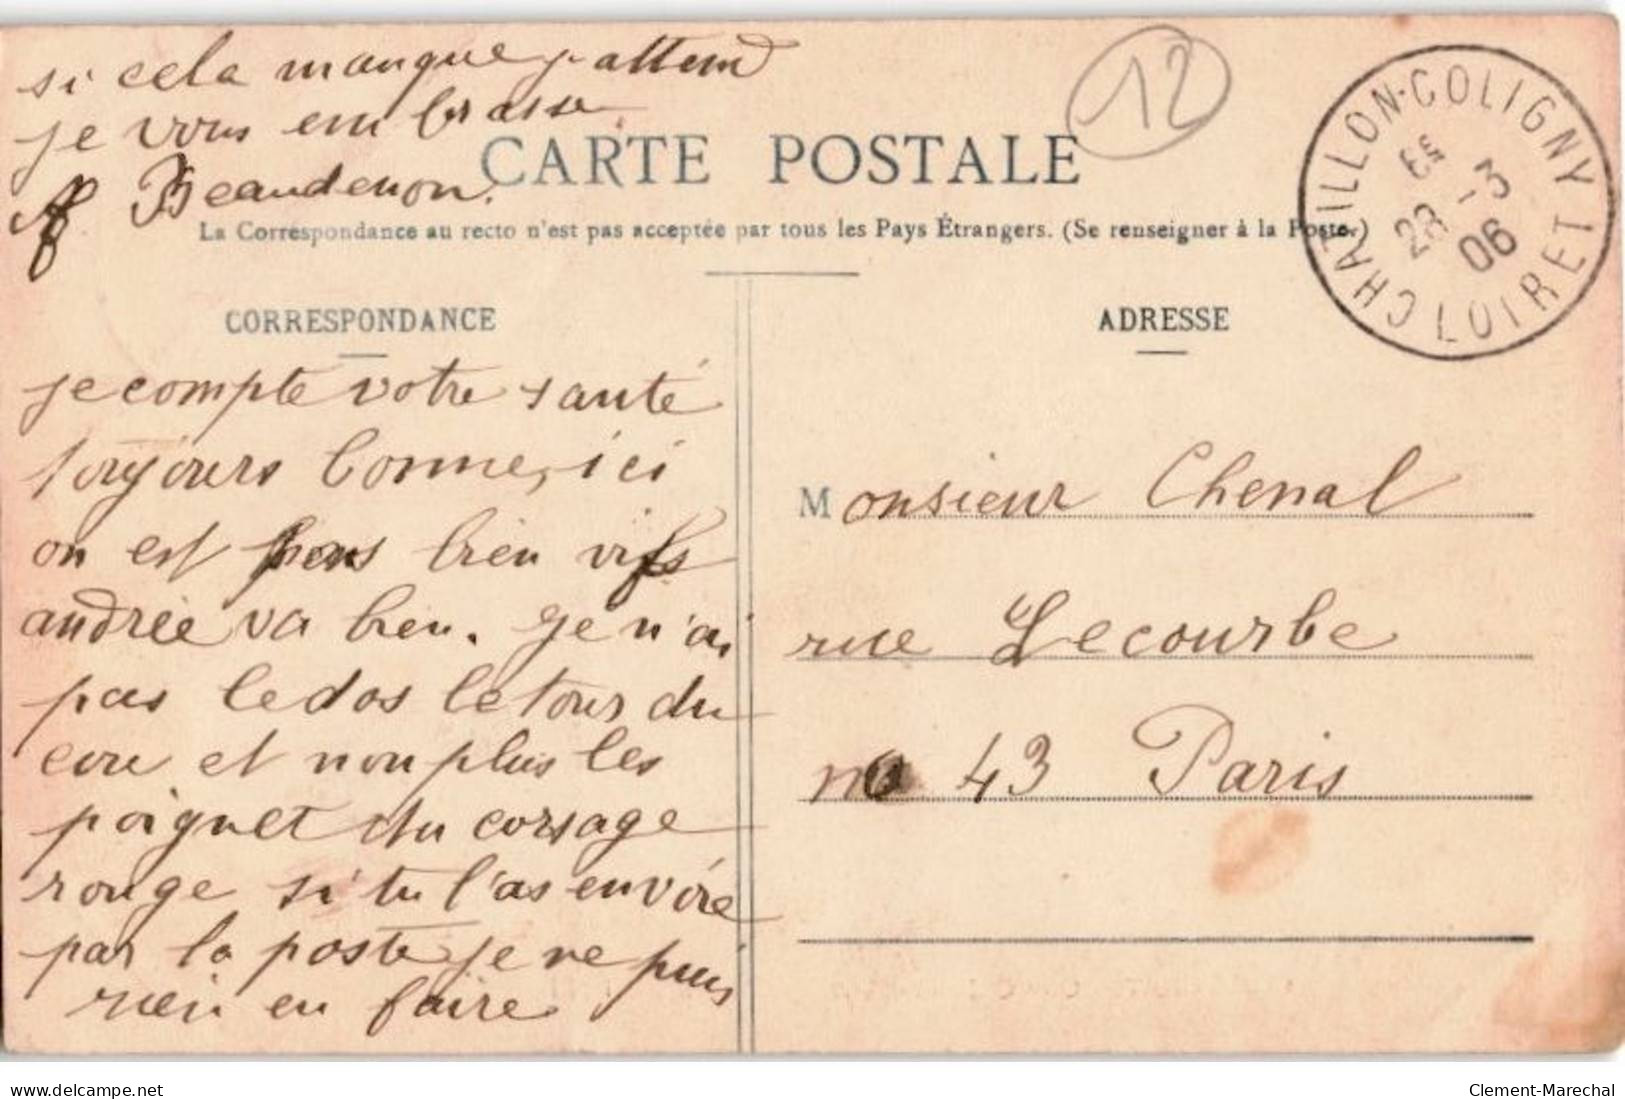 si cela manque j'attend
je vous embrasse
Beaudenon.
12
CARTE POSTALE
La Correspondance au recto n'est pas acceptée par tous les Pays Étrangers. (Se renseigner à la Poste.)
CHATILLON-COLIGNY
28 -3
06
LOIRET
CORRESPONDANCE
je compte votre santé
toujours bonne, ici
on est bien vifs
andrée va bien. je n'ai
pas le dos le tour du
cou et non plus les
poignet du corsage
rouge si tu l'as envoie
par la poste je ne puis
rien en faire
ADRESSE
Monsieur Chenal
rue Lecourbe
no 43 Paris
www.delcampe.net
Clement-Marechal